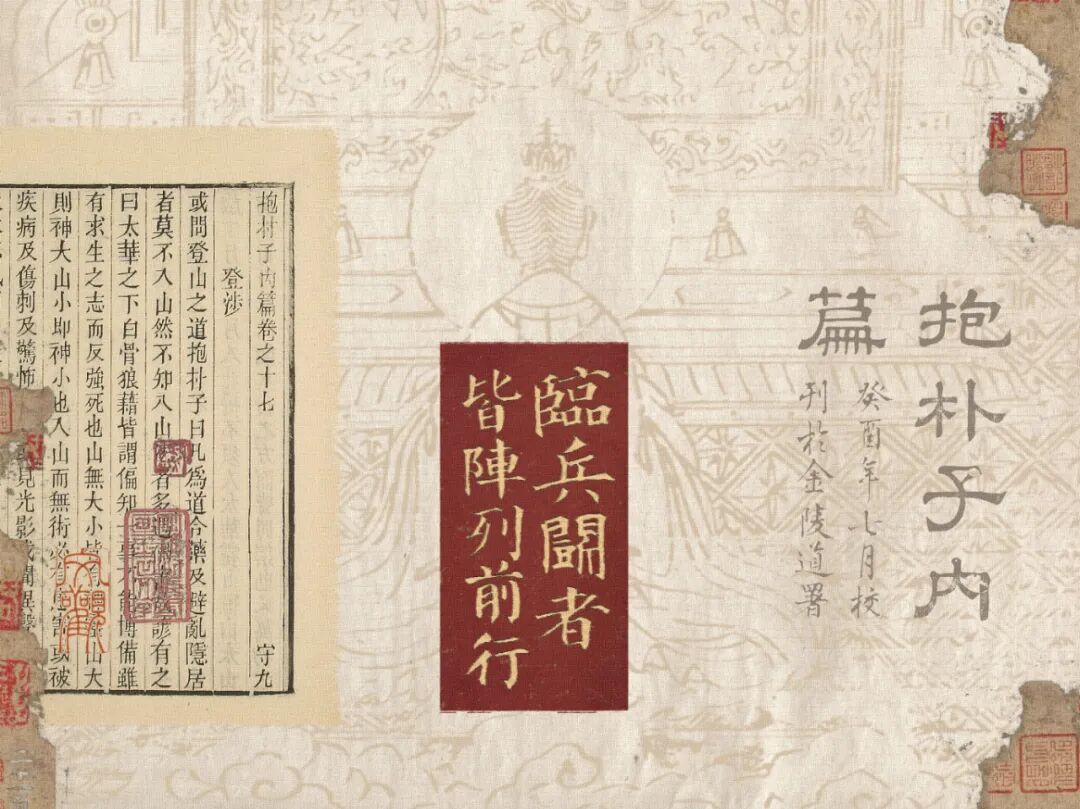 抱朴子内
篇
癸酉年七月校
刊於金陵道署
臨兵鬪者
皆陣列前行
抱朴子内篇卷之十七 守九
登涉
或問登山之道抱朴子曰凡爲道合藥及避亂隱居
者莫不入山然不知入山者多遇諺有之
曰太華之下白骨狼藉皆謂偏知一事不能博備雖
有求生之志而反強死也山無大小皆有山大
則神大山小即神小也入山而無術必有患害或被
疾病及傷刺及驚怖見光影或聞異聲